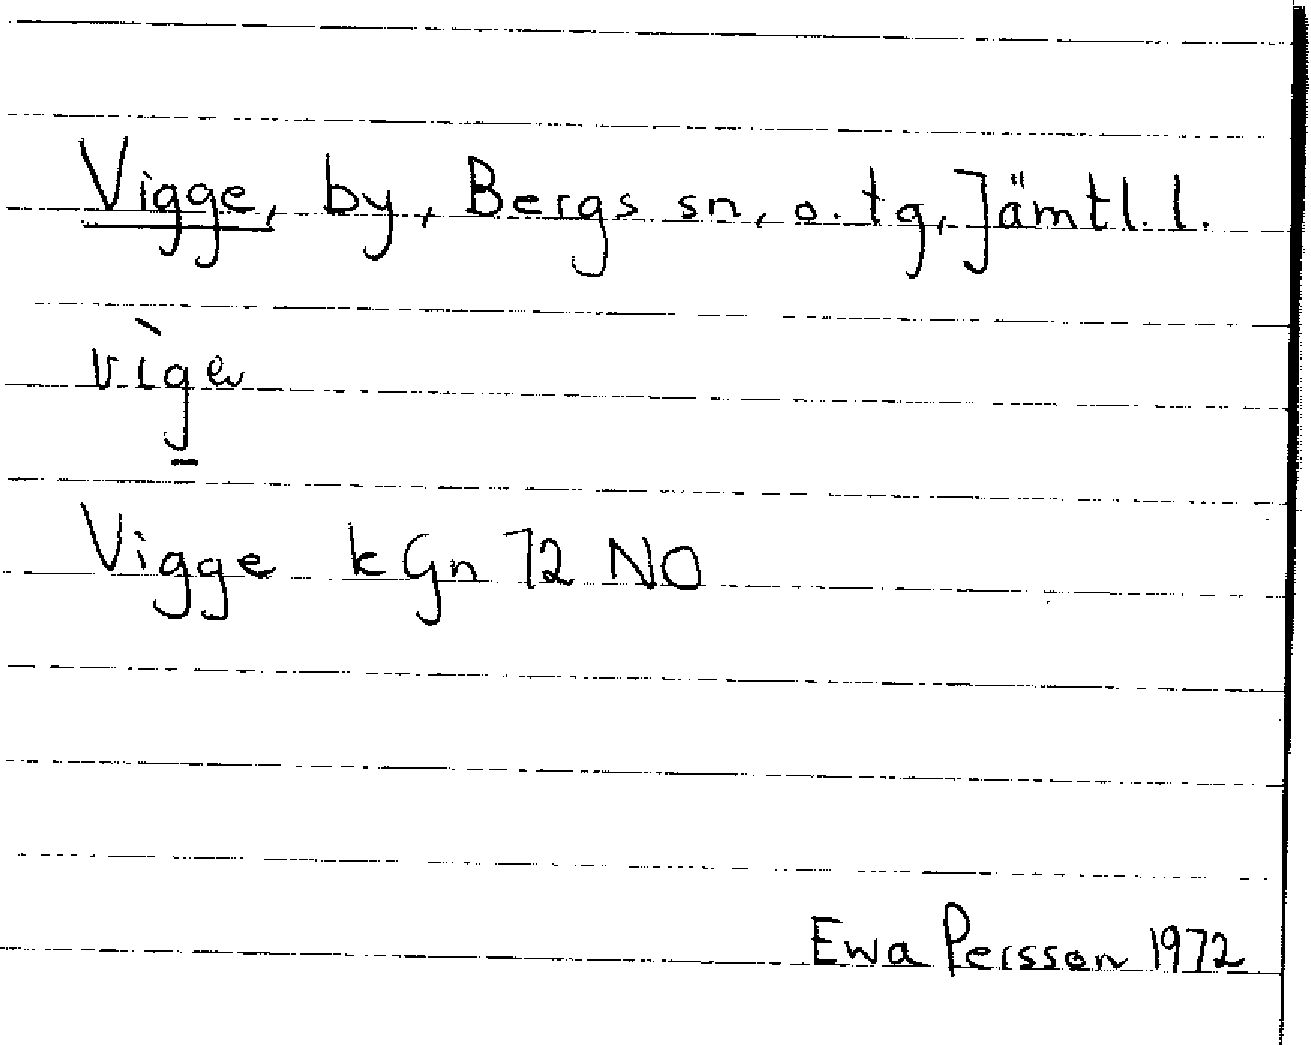 Vigge, by, Bergs sn, o. tg, Jämtl. l.
vìg̲e
Vigge kGn 72 NO
Ewa Persson 1972